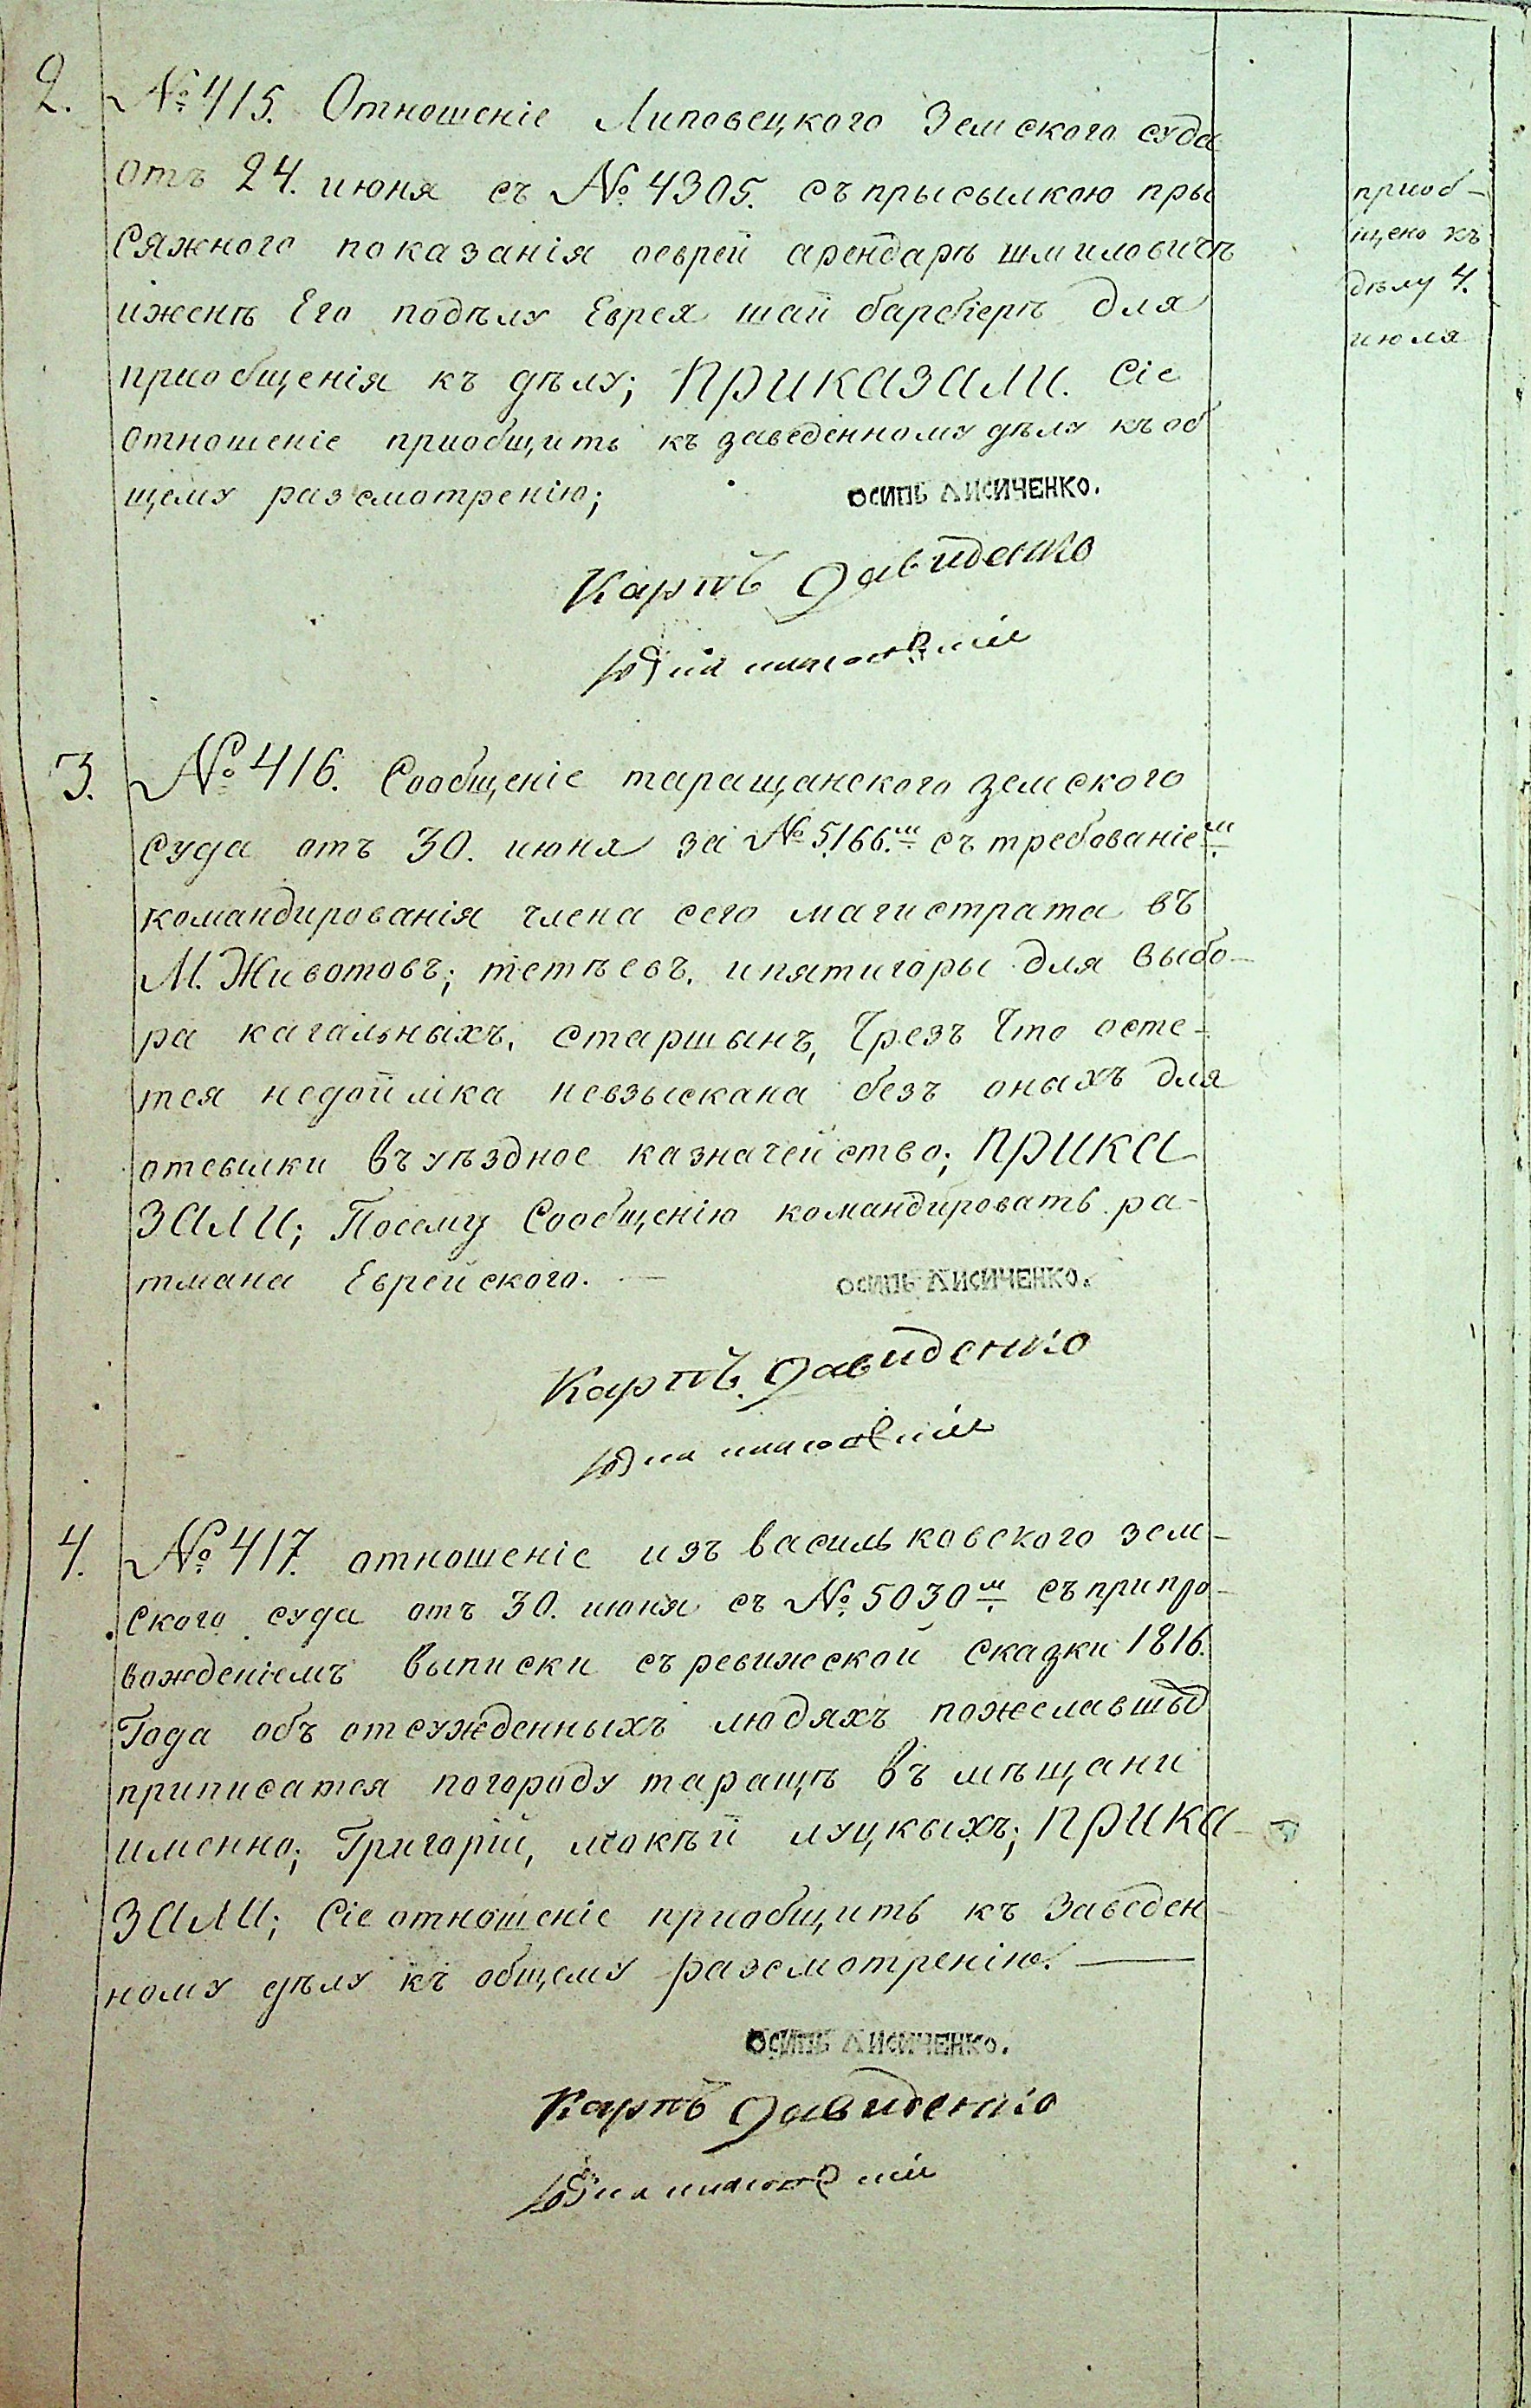 2. №415. Отношеніе Липовецкого Земского суда
отъ 24. июня съ №4305. съ прысылкою пры
сяжного показанія оеврей арендарѣ шмиловичѣ
иженѣ Его подѣлу Еврея шаи барбіерѣ для
приобщенія къ дѣлу; ПРИКАЗАЛИ. Сіе
отношеніе приобщить къ заведенному дѣлу къ об
щему разсмотренію;
приоб-
щено къ
дѣлу 4.
июля
ОСИПЪ ЛИСИЧЕНКО.
Карпъ Давиденко
3. №416. Сообщеніе таращанского земского
суда отъ 30. июня за №5166.м съ требованіем
командированія члена сего магистрата въ
М. Животовъ; тетѣевъ, ипятигоры для выбо-
ра кагальныхъ старшынъ, Чрезъ Что осте-
тся недоимка невзыскана безъ оныхъ для
отсылки въ уѣздное казначейство; ПРИКА
ЗАЛИ; Посему Сообщенію командировать ра-
тмана Еврейского.
ОСИПЪ ЛИСИЧЕНКО.
Карпъ Давиденко
4. №417. отношеніе изъ васильковского зем-
ского суда отъ 30. июня съ №5030м съ припро-
вожденіемъ выписки съ ревижской сказки 1816.
Года объ отсужденныхъ людяхъ пожелавшых
приписатся погороду таращѣ въ мѣщани
именно; Григорій, мокѣй луцкыхъ; ПРИКА-
ЗАЛИ; Сіе отношеніе приобщить къ Заведен-
ному дѣлу къ общему разсмотренію.
ОСИПЪ ЛИСИЧЕНКО.
Карпъ Давиденко